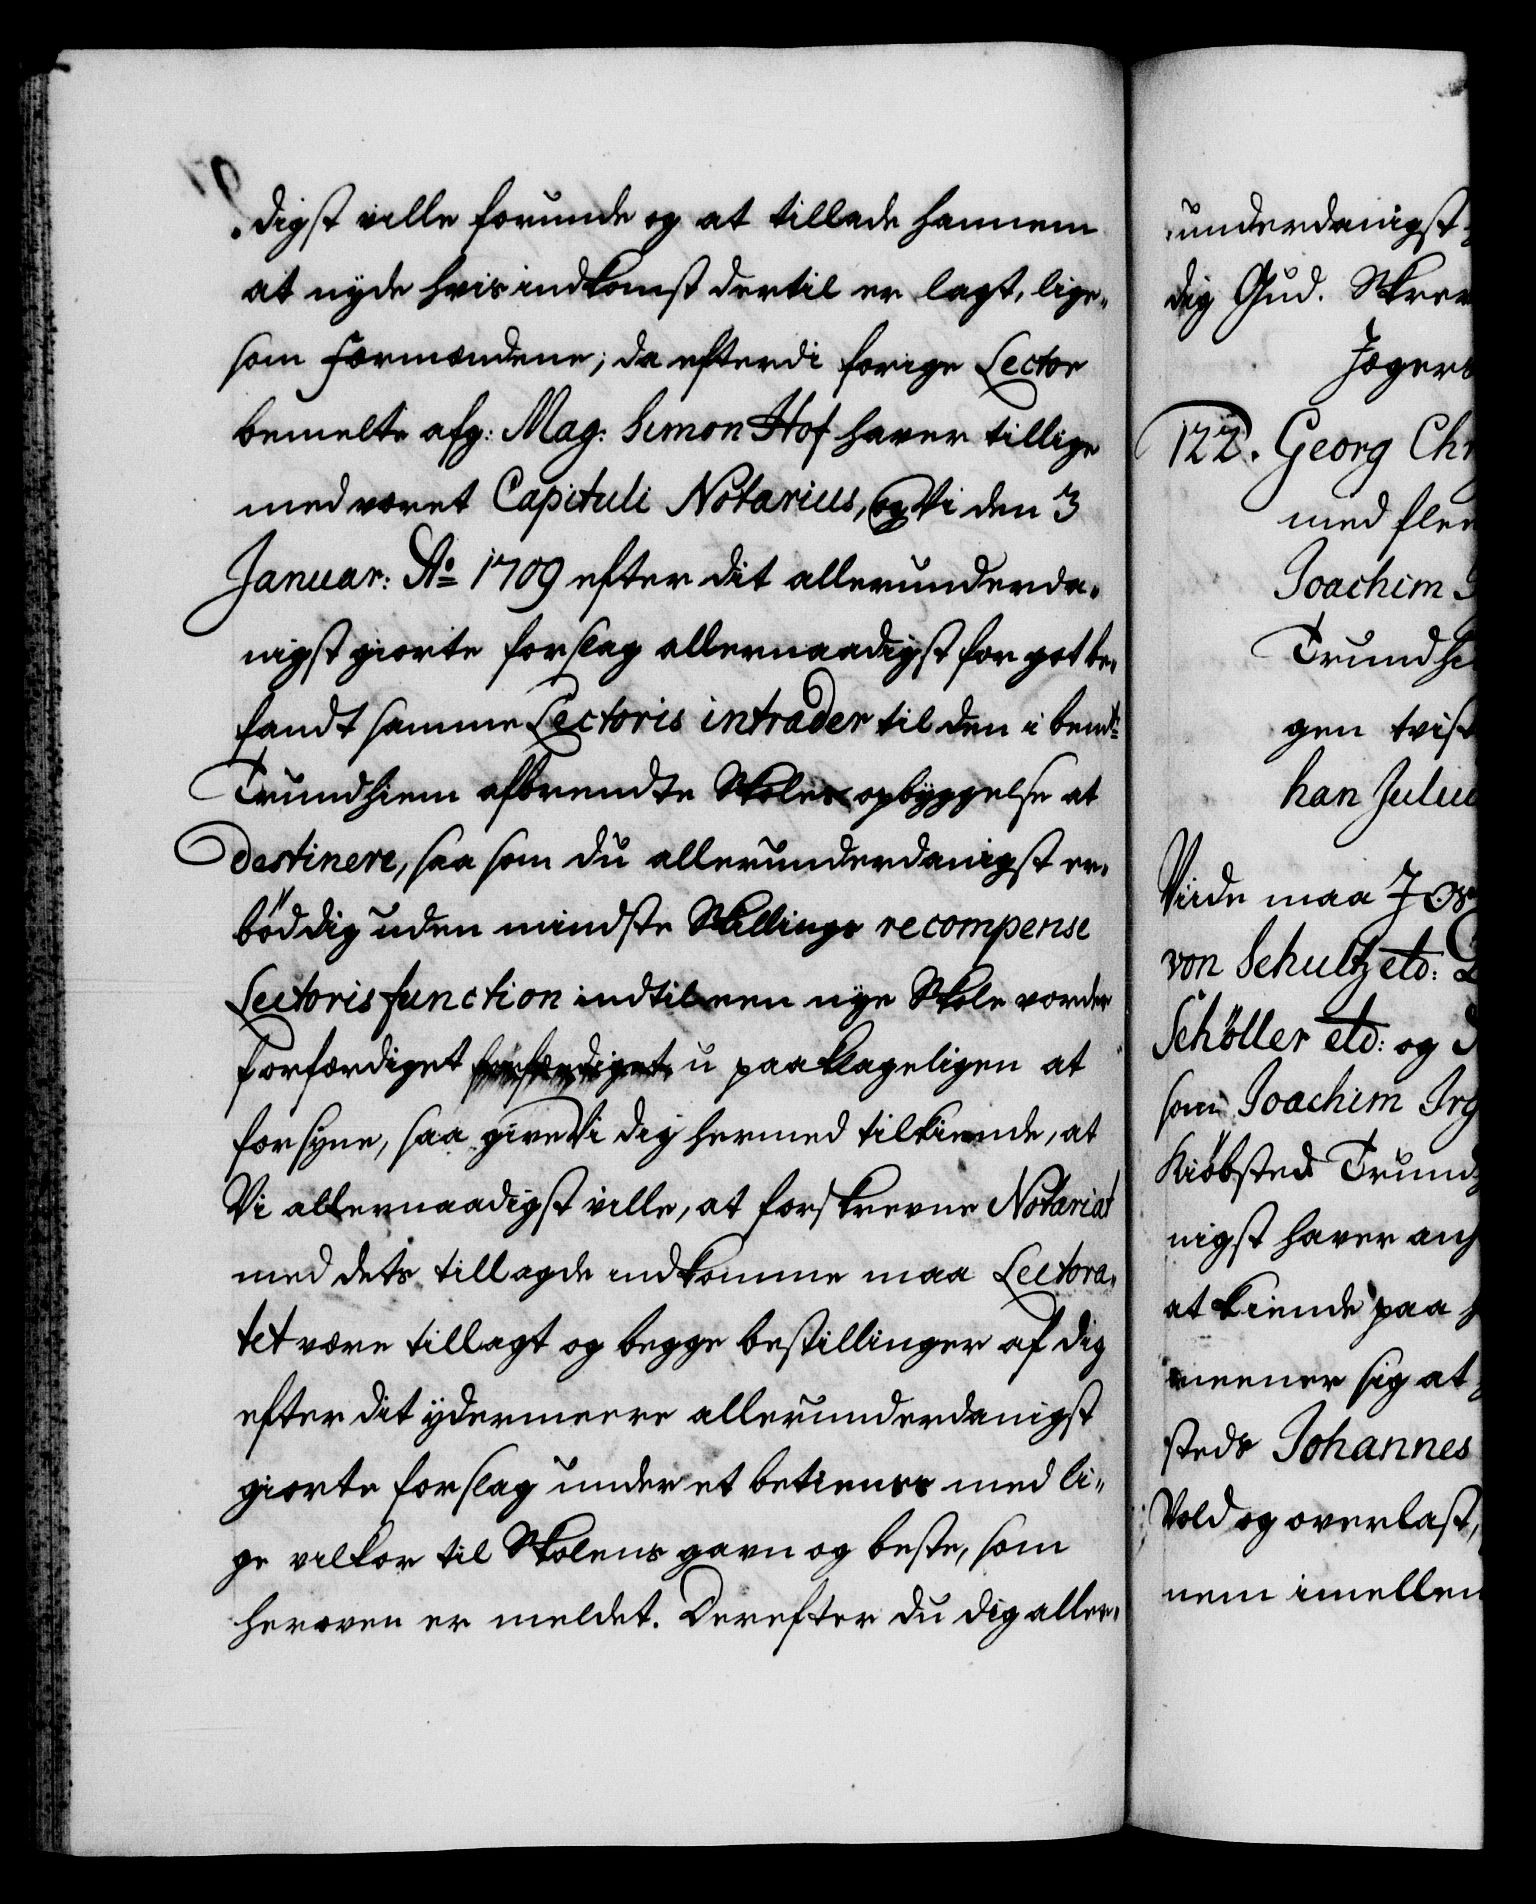 digst ville forunde og at tillade hannem
at nyde hvis indkomst dertil er lagt, lige-
som Formændene; da efterdi forige Lector
bemelte afg: Mag: Simon Hof haver tillige
med været Capituli Notarius, og Vi den 3
Januar: Ao 1709 efter dit allerunderda-
nigst giorte forslag allernaadigst for got be-
fandt samme Lectoris intrader til den i bemte
Trundhiem afbrendte Skoles opbyggelse at
destinere, saa som du allerunderdanigst er-
böd dig uden mindste Skillings recompense
Lectoris function indtil een nye Skole vorder
forfærdiget forfærdiget u paaklageligen at
forsyne, saa give Vi dig hermed tilkiende, at
Vi allernaadigst ville, at forskrevne Notariat
med dets tillagde indkomme maa Lectora-
tet være tillagt og begge bestillinger af dig
efter dit ydermeere allerunderdanigst
giorte forslag under et betienes med li-
ge vilkor til Skolens gavn og beste, som
heroven er meldet. Derefter du dig aller-
underdanigst
dig Gud. Skrev
Jægers
122. Georg Chr
med fler
Joachim
Trundhi
gen tvist
han Juliu
Viide maa
von Schultz etc:
Schöller etc: og
som Joachim Irg
Kiöbsted Trund
nigst haver an
at kiende paa
meener sig at
steds Johannes
Vold og overlast,
nem imellem